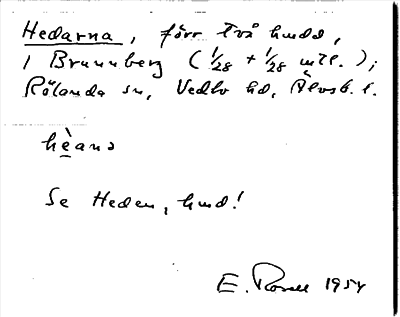 Hedarna, förr två hmdd,
i Brunnberg (1/28 + 1/28 mtl.);
Rölanda sn, Vedbo hd, Älvsb. l.
hèana
Se Heden, hmd!
E. Rosell 1954